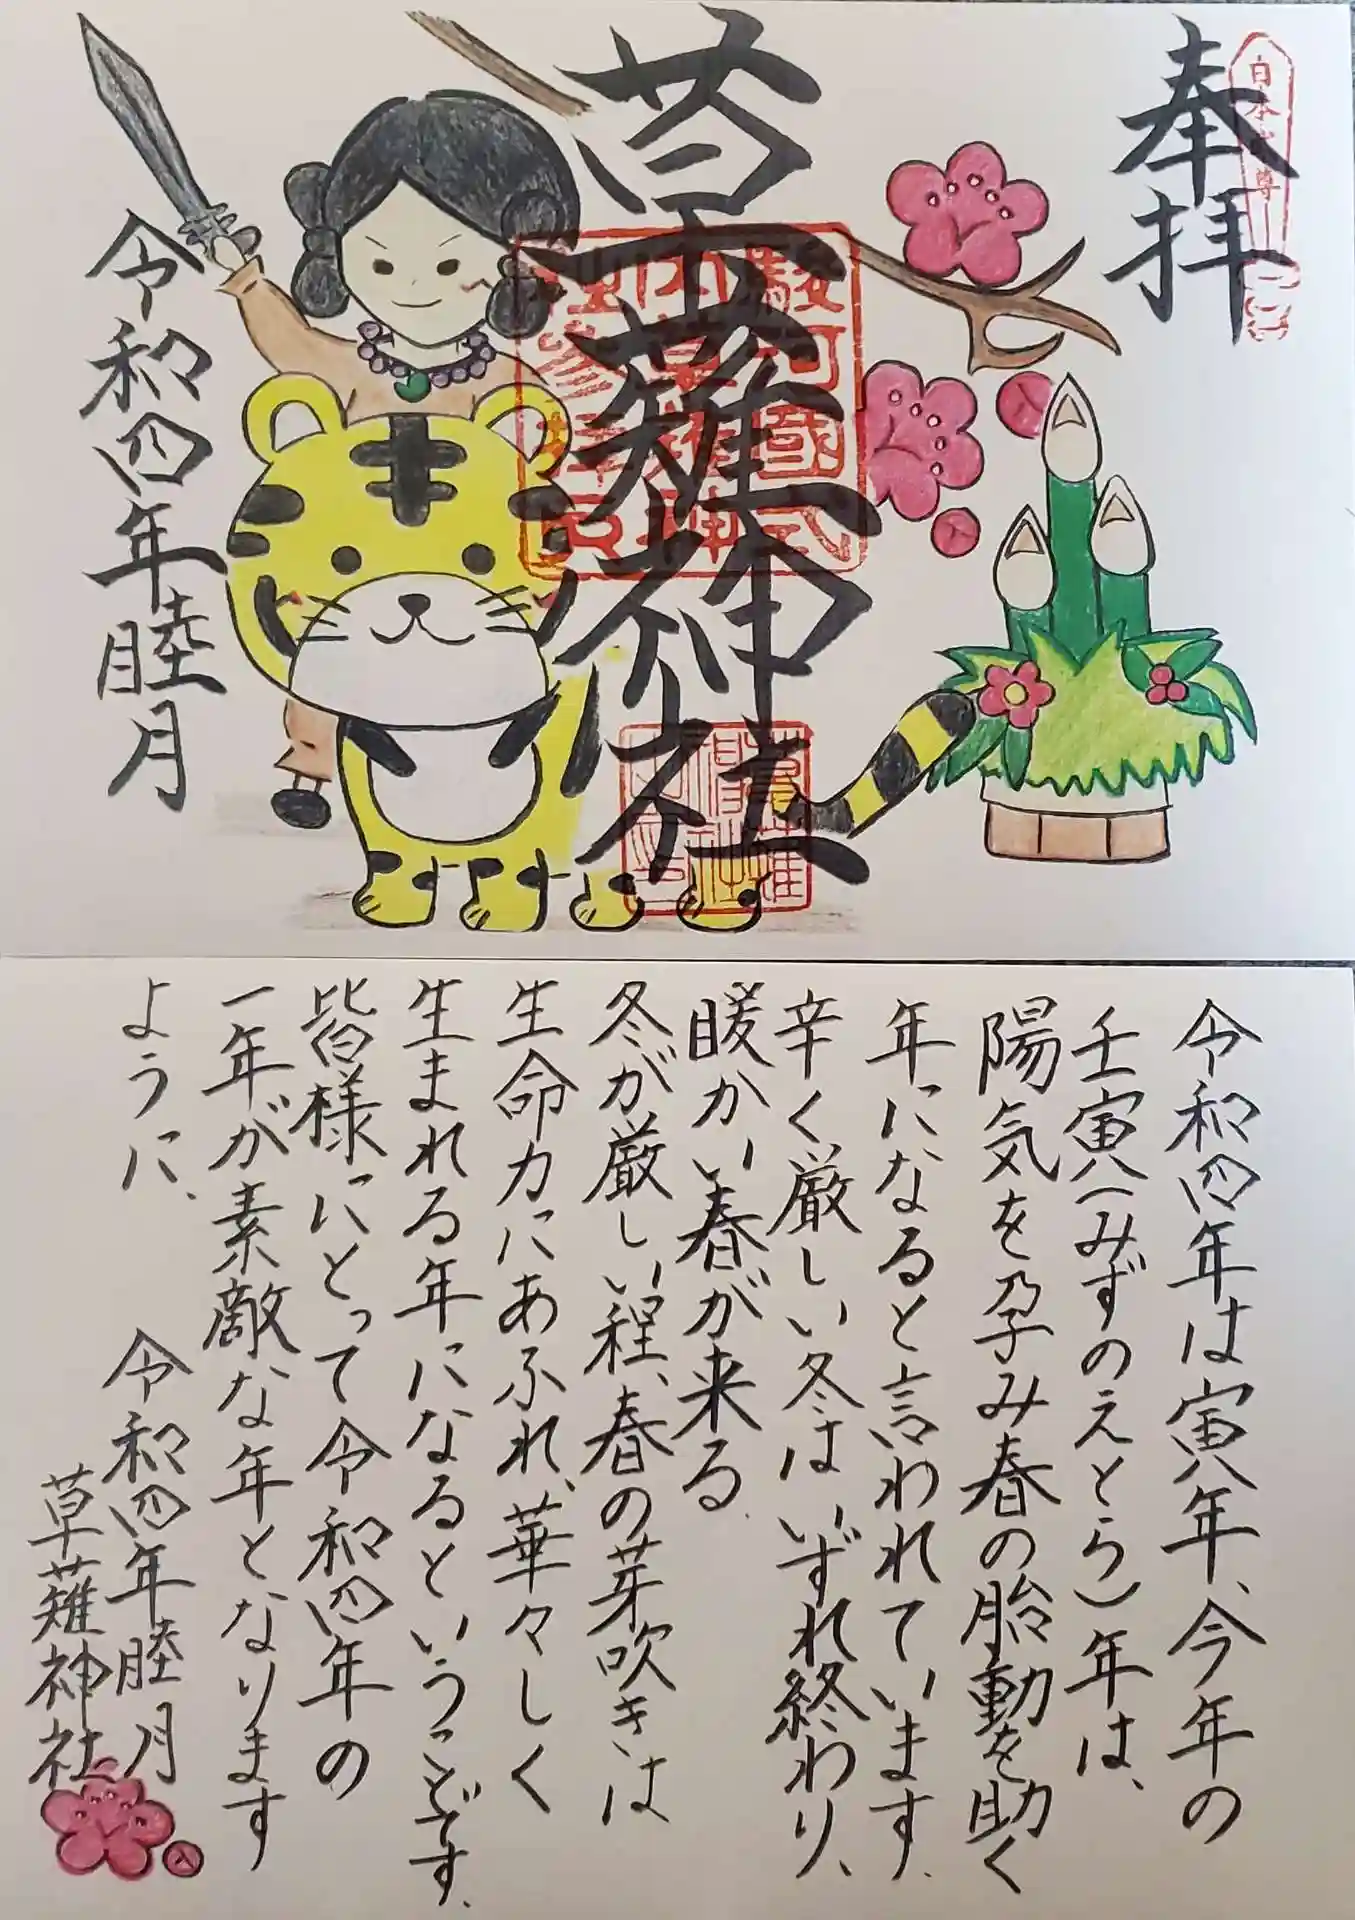 奉拝
草薙神社
令和四年睦月
令和四年は寅年、今年の
壬寅(みずのえとら)年は、
陽気を孕み春の胎動を助く
年になると言われています。
辛く、厳しい冬はいずれ終わり、
暖かい春が来る。
冬が厳しい程、春の芽吹きは
生命力にあふれ、華々しく
生まれる年になるということです。
皆様にとって令和四年の
一年が素敵な年となります
ように、
令和四年睦月
草薙神社